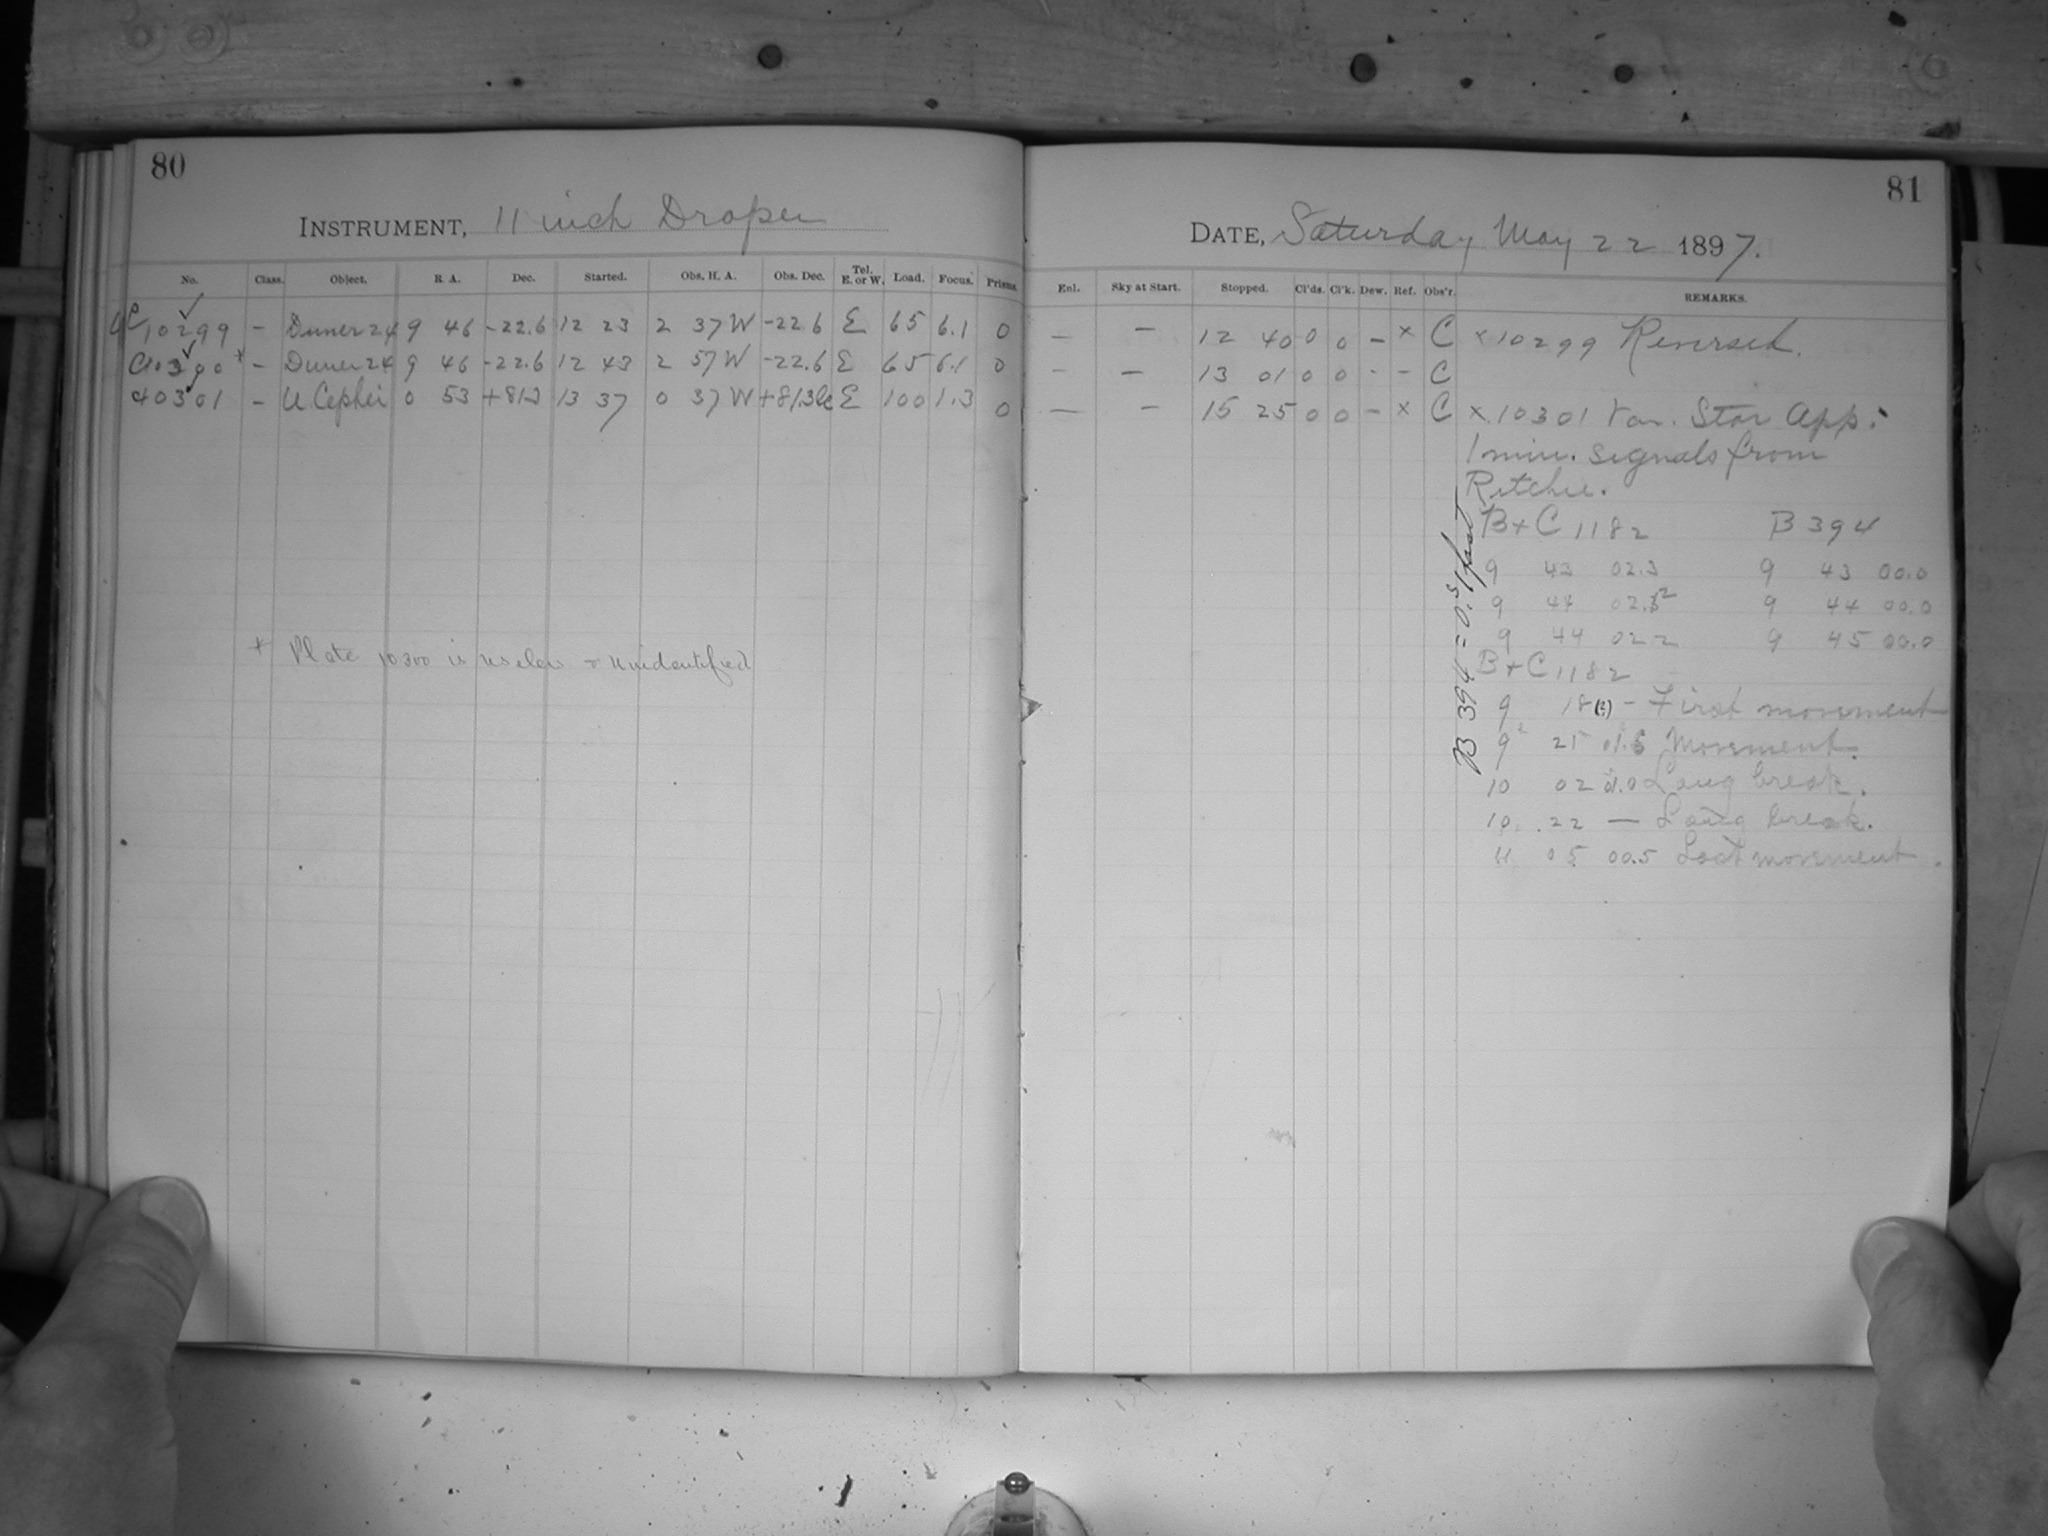 80
INSTRUMENT, 11 inch Draper
No. Class. Object. R. A. Dec. Started. Obs. H. A. Obs. Dec. Tel. E. or W. Load. Focus. Prisms.
C 10299 – Duner 24 9 46 -22.6 12 23 2 37 W -22.6 E 65 6.1 0
C10300* – Duner 24 9 46 -22.6 12 43 2 57 W -22.6 E 65 6.1 0
10301 – U Cephei 0 53 13 37 0 37 W E 100 1.3 0
* Plate 10300 is useless & unidentified
81
DATE, Saturday May 22 1897.
Enl. Sky at Start. Stopped. Cl'ds. Cl'k. Dew. Ref. Obs'r. REMARKS.
– – 12 40 0 0 – × C × 10299 Reversed.
– – 13 01 0 0 - – C
– – 15 25 0 0 – × C × 10301 Var. Star App.
1 min. signals from
Ritchie.
B+C 1182 B 394
9 43 02.3 9 43 00.0
9 44 02. 9 44 00.0
9 44 02.2 9 45 00.0
B+C 1182
9 18(?) – First movement
9 25 01.5 Movement.
10 02 01.0 Long break.
10 22 — Long break.
11 05 00.5 Last movement.
B 394 = 0.s1 fast